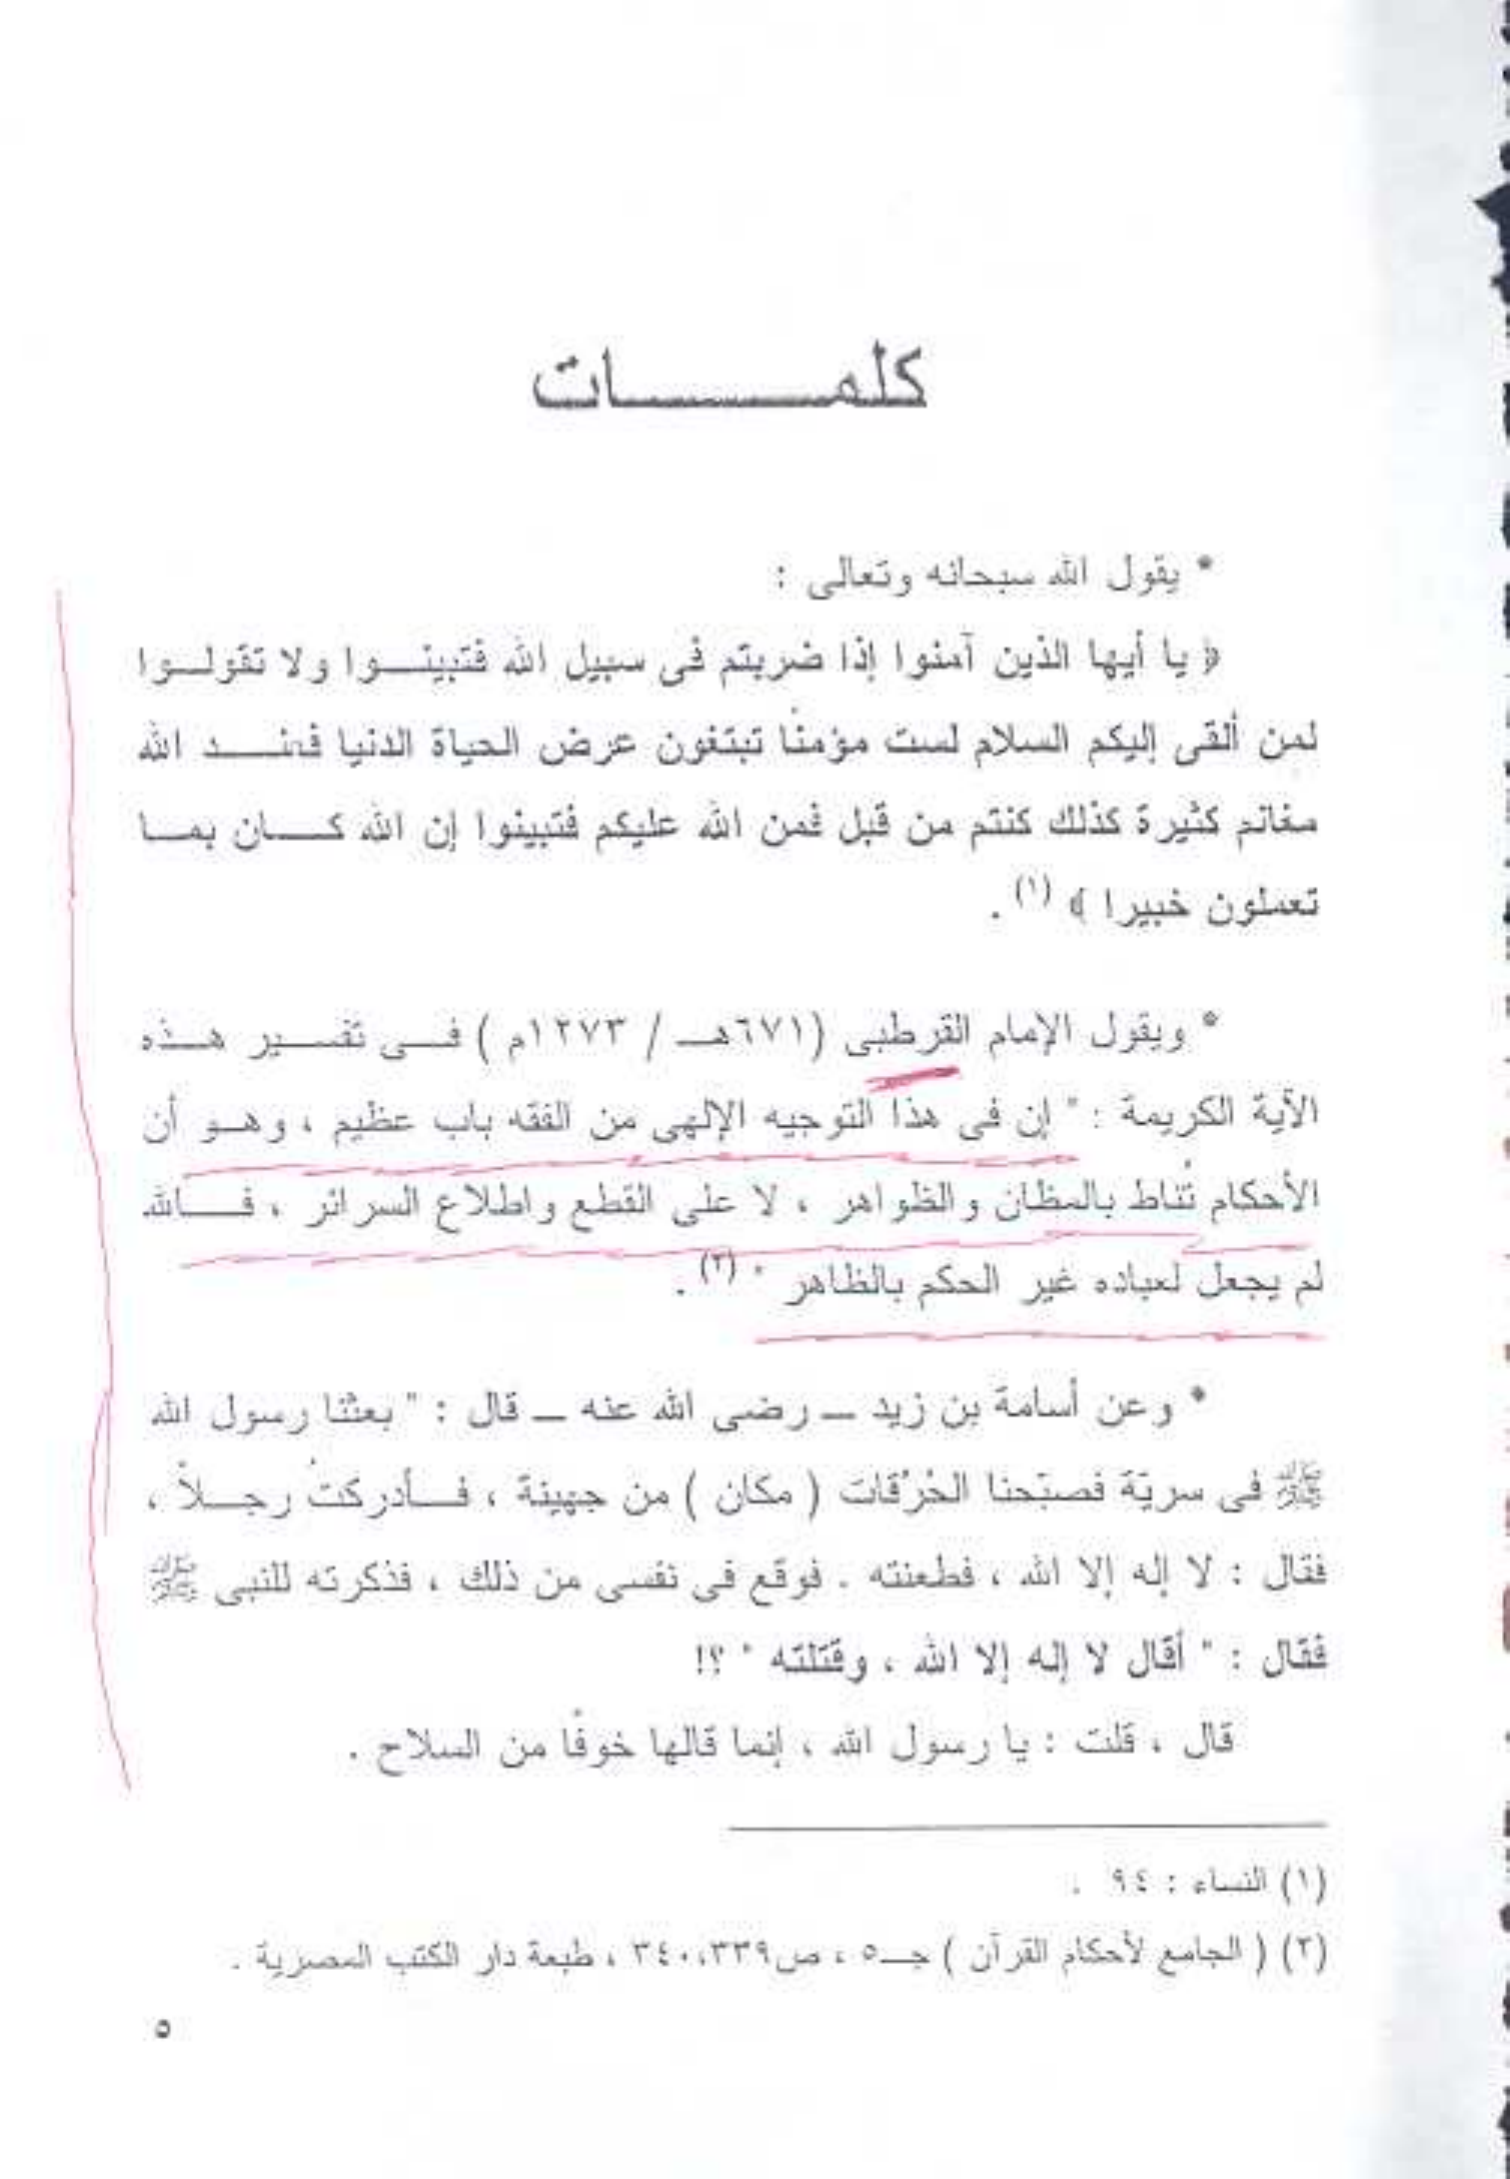 كلمـــــات
* يقول الله سبحانه وتعالى :
﴿ يا أيها الذين آمنوا إذا ضربتم فى سبيل الله فتبينـــوا ولا تقولـــوا
لمن ألقى إليكم السلام لست مؤمنًا تبتغون عرض الحياة الدنيا فعنـــد الله
مغانم كثيرة كذلك كنتم من قبل فمن الله عليكم فتبينوا إن الله كـــان بمـــا
تعملون خبيرا ﴾ (١) .
* ويقول الإمام القرطبى (٦٧١هـ / ١٢٧٣م ) فـــى تفســـير هـــذه
الآية الكريمة : " إن فى هذا التوجيه الإلهى من الفقه باب عظيم ، وهـــو أن
الأحكام تُناط بالمظان والظواهر ، لا على القطع واطلاع السرائر ، فـــالله
لم يجعل لعباده غير الحكم بالظاهر " (٢) .
* وعن أسامة بن زيد ــ رضى الله عنه ــ قال : " بعثنا رسول الله
ﷺ فى سريّة فصبّحنا الحُرُقات ( مكان ) من جهينة ، فـــأدركتُ رجـــلاً ،
فقال : لا إله إلا الله ، فطعنته . فوقع فى نفسى من ذلك ، فذكرته للنبى ﷺ
فقال : " أقال لا إله إلا الله ، وقتلته " ؟!
قال ، قلت : يا رسول الله ، إنما قالها خوفًا من السلاح .
(١) النساء : ٩٤ .
(٢) ( الجامع لأحكام القرآن ) جـــ٥ ، ص٣٣٩،٣٤٠ ، طبعة دار الكتب المصرية .
٥